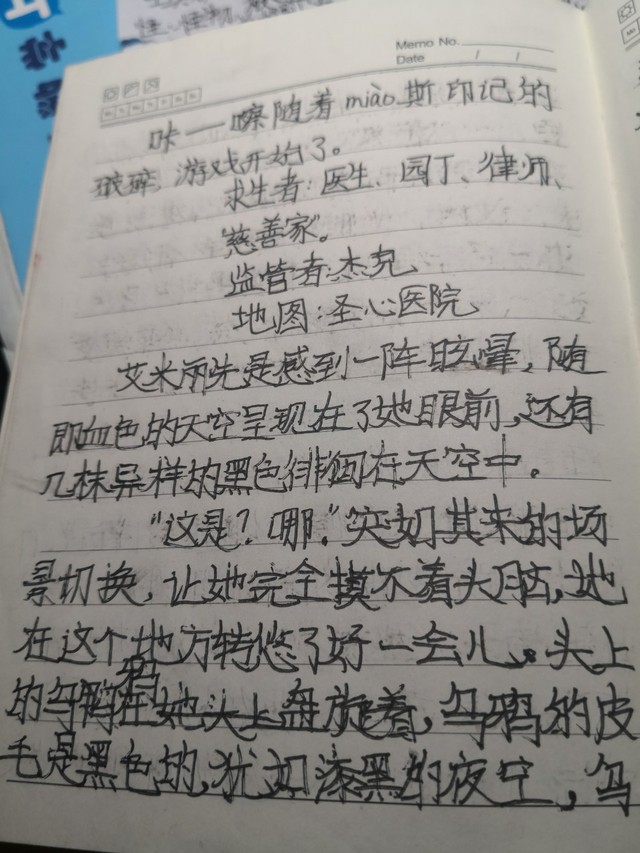 Memo No.
Date / /
咔一嚓随着miào斯印记的
破碎,游戏开始了。
求生者:医生、园丁、律师、
"慈善家"。
监管者:杰克
地图:圣心医院
艾米丽先是感到一阵眩晕,随
即血色的天空呈现在了她眼前,还有
几抹异样的黑色徘徊在天空中。
"这是?哪."突如其来的场
景切换,让她完全摸不着头脑,她
在这个地方转悠了好一会儿。头上
的乌鸦在她头上盘旋着,乌鸦的皮
毛是黑色的,犹如漆黑的夜空,乌